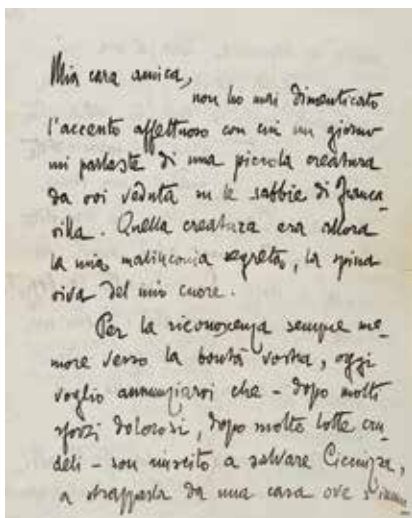 Mia cara amica,
non ho mai dimenticato
l'accento affettuoso con cui un giorno
mi parlaste di una piccola creatura
da voi veduta su le sabbie di Franca-
villa. Quella creatura era allora
la mia malinconia segreta, la spina
viva del mio cuore.
Per la riconoscenza sempre me-
more verso la bontà vostra, oggi
voglio annunziarvi che – dopo molti
sforzi dolorosi, dopo molte lotte cru-
deli – son riuscito a salvare Cicciuzza,
a strapparla da una casa ove